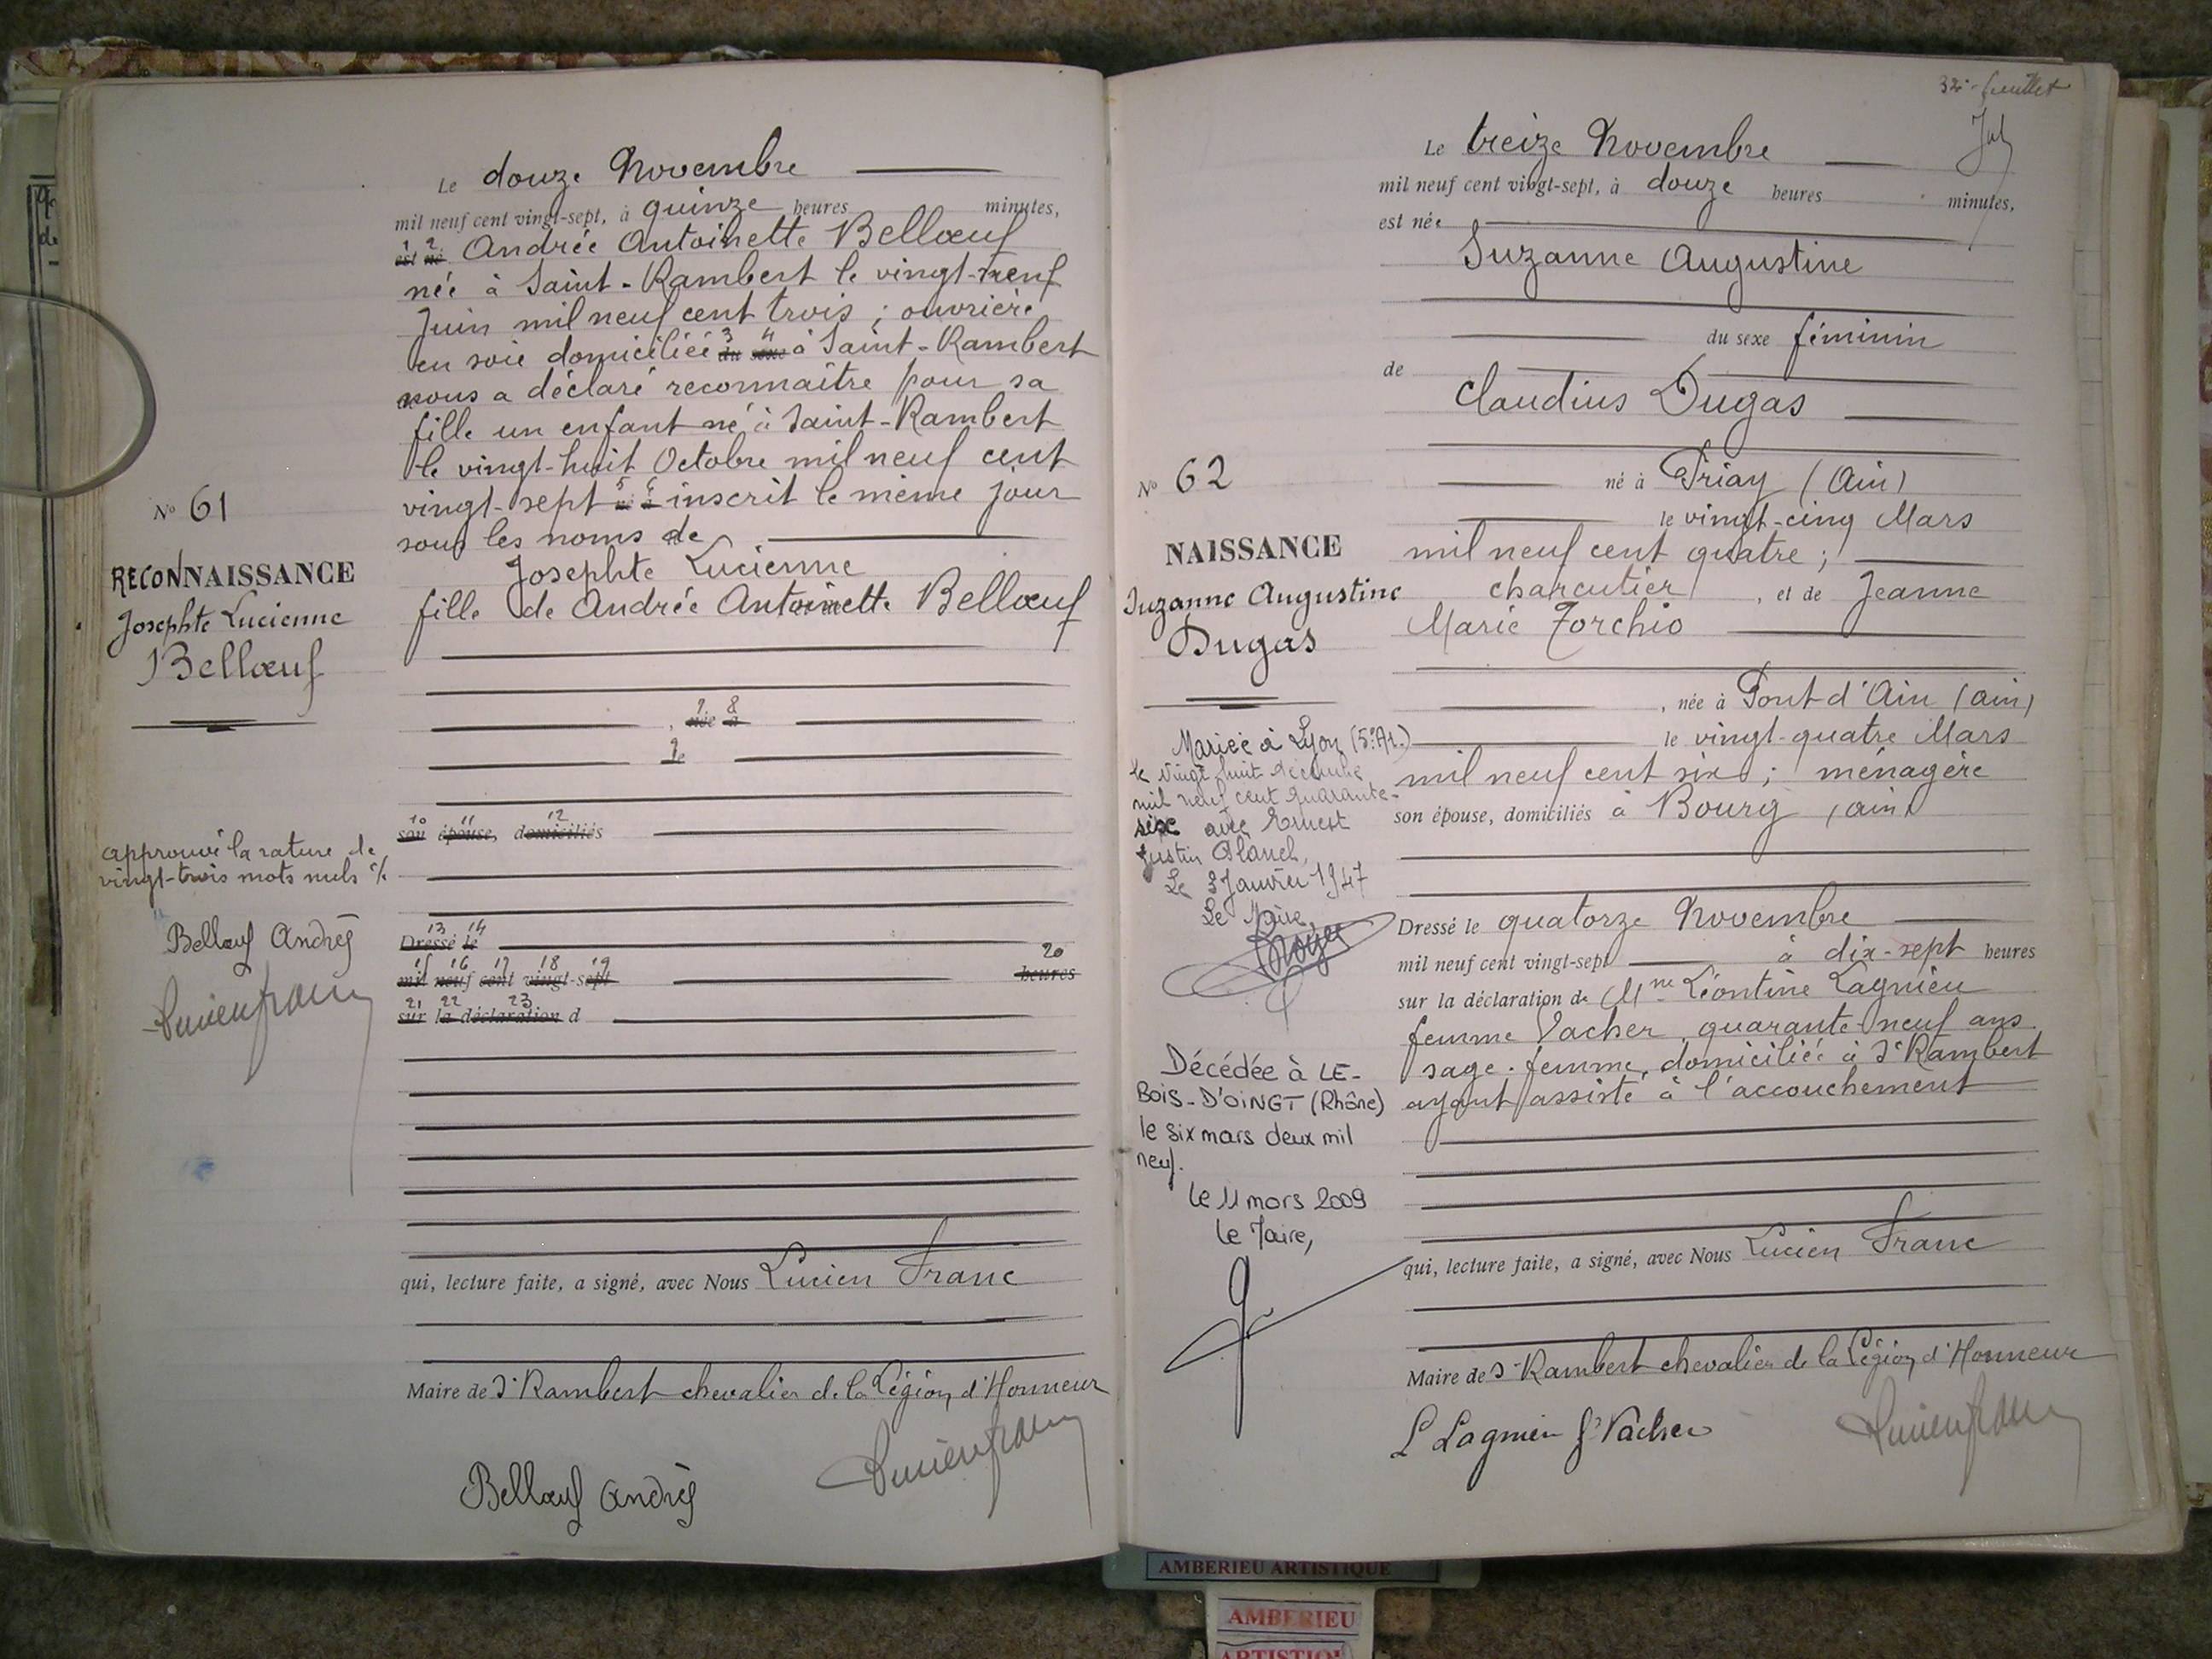 Le douze Novembre
mil neuf cent vingt-sept, à quinze heures minutes,
1 2
est né Andrée Antoinette Bellœuf
née à Saint-Rambert le vingt-neuf
Juin mil neuf cent trois ; ouvrière
3 4
en soie domiciliée du sexe à Saint-Rambert
nous a déclaré reconnaître pour sa
fille un enfant né à Saint-Rambert
le vingt-huit Octobre mil neuf cent
5 6
vingt-sept né à inscrit le même jour
sous les noms de
Josephte Lucienne
fille de Andrée Antoinette Bellœuf
7 8
, née à
9
le
10 11 12
son épouse, domiciliés
13 14
Dressé le
15 16 17 18 19 20
mil neuf cent vingt-sept heures
21 22 23
sur la déclaration d
qui, lecture faite, a signé, avec Nous Lucien Franc
Maire de St Rambert chevalier de la Légion d'Honneur
Bellœuf Andrée
Lucien Franc
No 61
RECONNAISSANCE
Josephte Lucienne
Bellœuf
approuvé la rature de
vingt-trois mots nuls
Bellœuf Andrée
Lucien Franc
32e feuillet
Le treize Novembre
mil neuf cent vingt-sept, à douze heures minutes,
est née
Suzanne Augustine
du sexe féminin
de
Claudius Dugas
né à Priay (Ain)
le vingt-cinq Mars
mil neuf cent quatre ;
charcutier , et de Jeanne
Marie Zorchio
, née à Pont d'Ain (ain)
le vingt-quatre Mars
mil neuf cent six ; ménagère
son épouse, domiciliés à Bourg (ain)
Dressé le quatorze Novembre
mil neuf cent vingt-sept à dix-sept heures
sur la déclaration de Mme Léontine Lagnieu
femme Vacher, quarante-neuf ans
sage-femme, domiciliée à St Rambert
ayant assisté à l'accouchement
qui, lecture faite, a signé, avec Nous Lucien Franc
Maire de St Rambert chevalier de la Légion d'Honneur
L Lagnieu f Vacher
Lucien Franc
No 62
NAISSANCE
Suzanne Augustine
Dugas
Mariée à Lyon (5e Ar.)
le vingt huit décembre
mil neuf cent quarante-
six avec Ernest
Justin Blanch,
Le 3 Janvier 1947
Le Maire,
Décédée à LE-
BOIS-D'OINGT (Rhône)
le six mars deux mil
neuf.
le 11 mars 2009
le Maire,
AMBERIEU ARTISTIQUE
AMBERIEU
ARTISTIQU